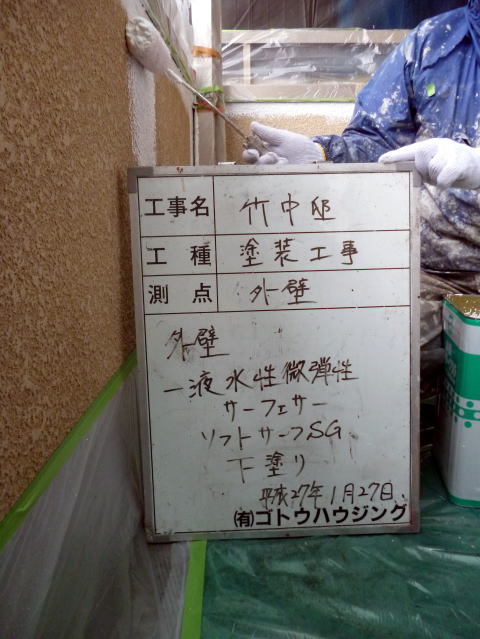 工事名 竹中邸
工種 塗装工事
測点 外壁
外壁
一液水性微弾性
サーフェサー
ソフトサーフSG
下塗り
平成27年1月27日
(有)ゴトウハウジング